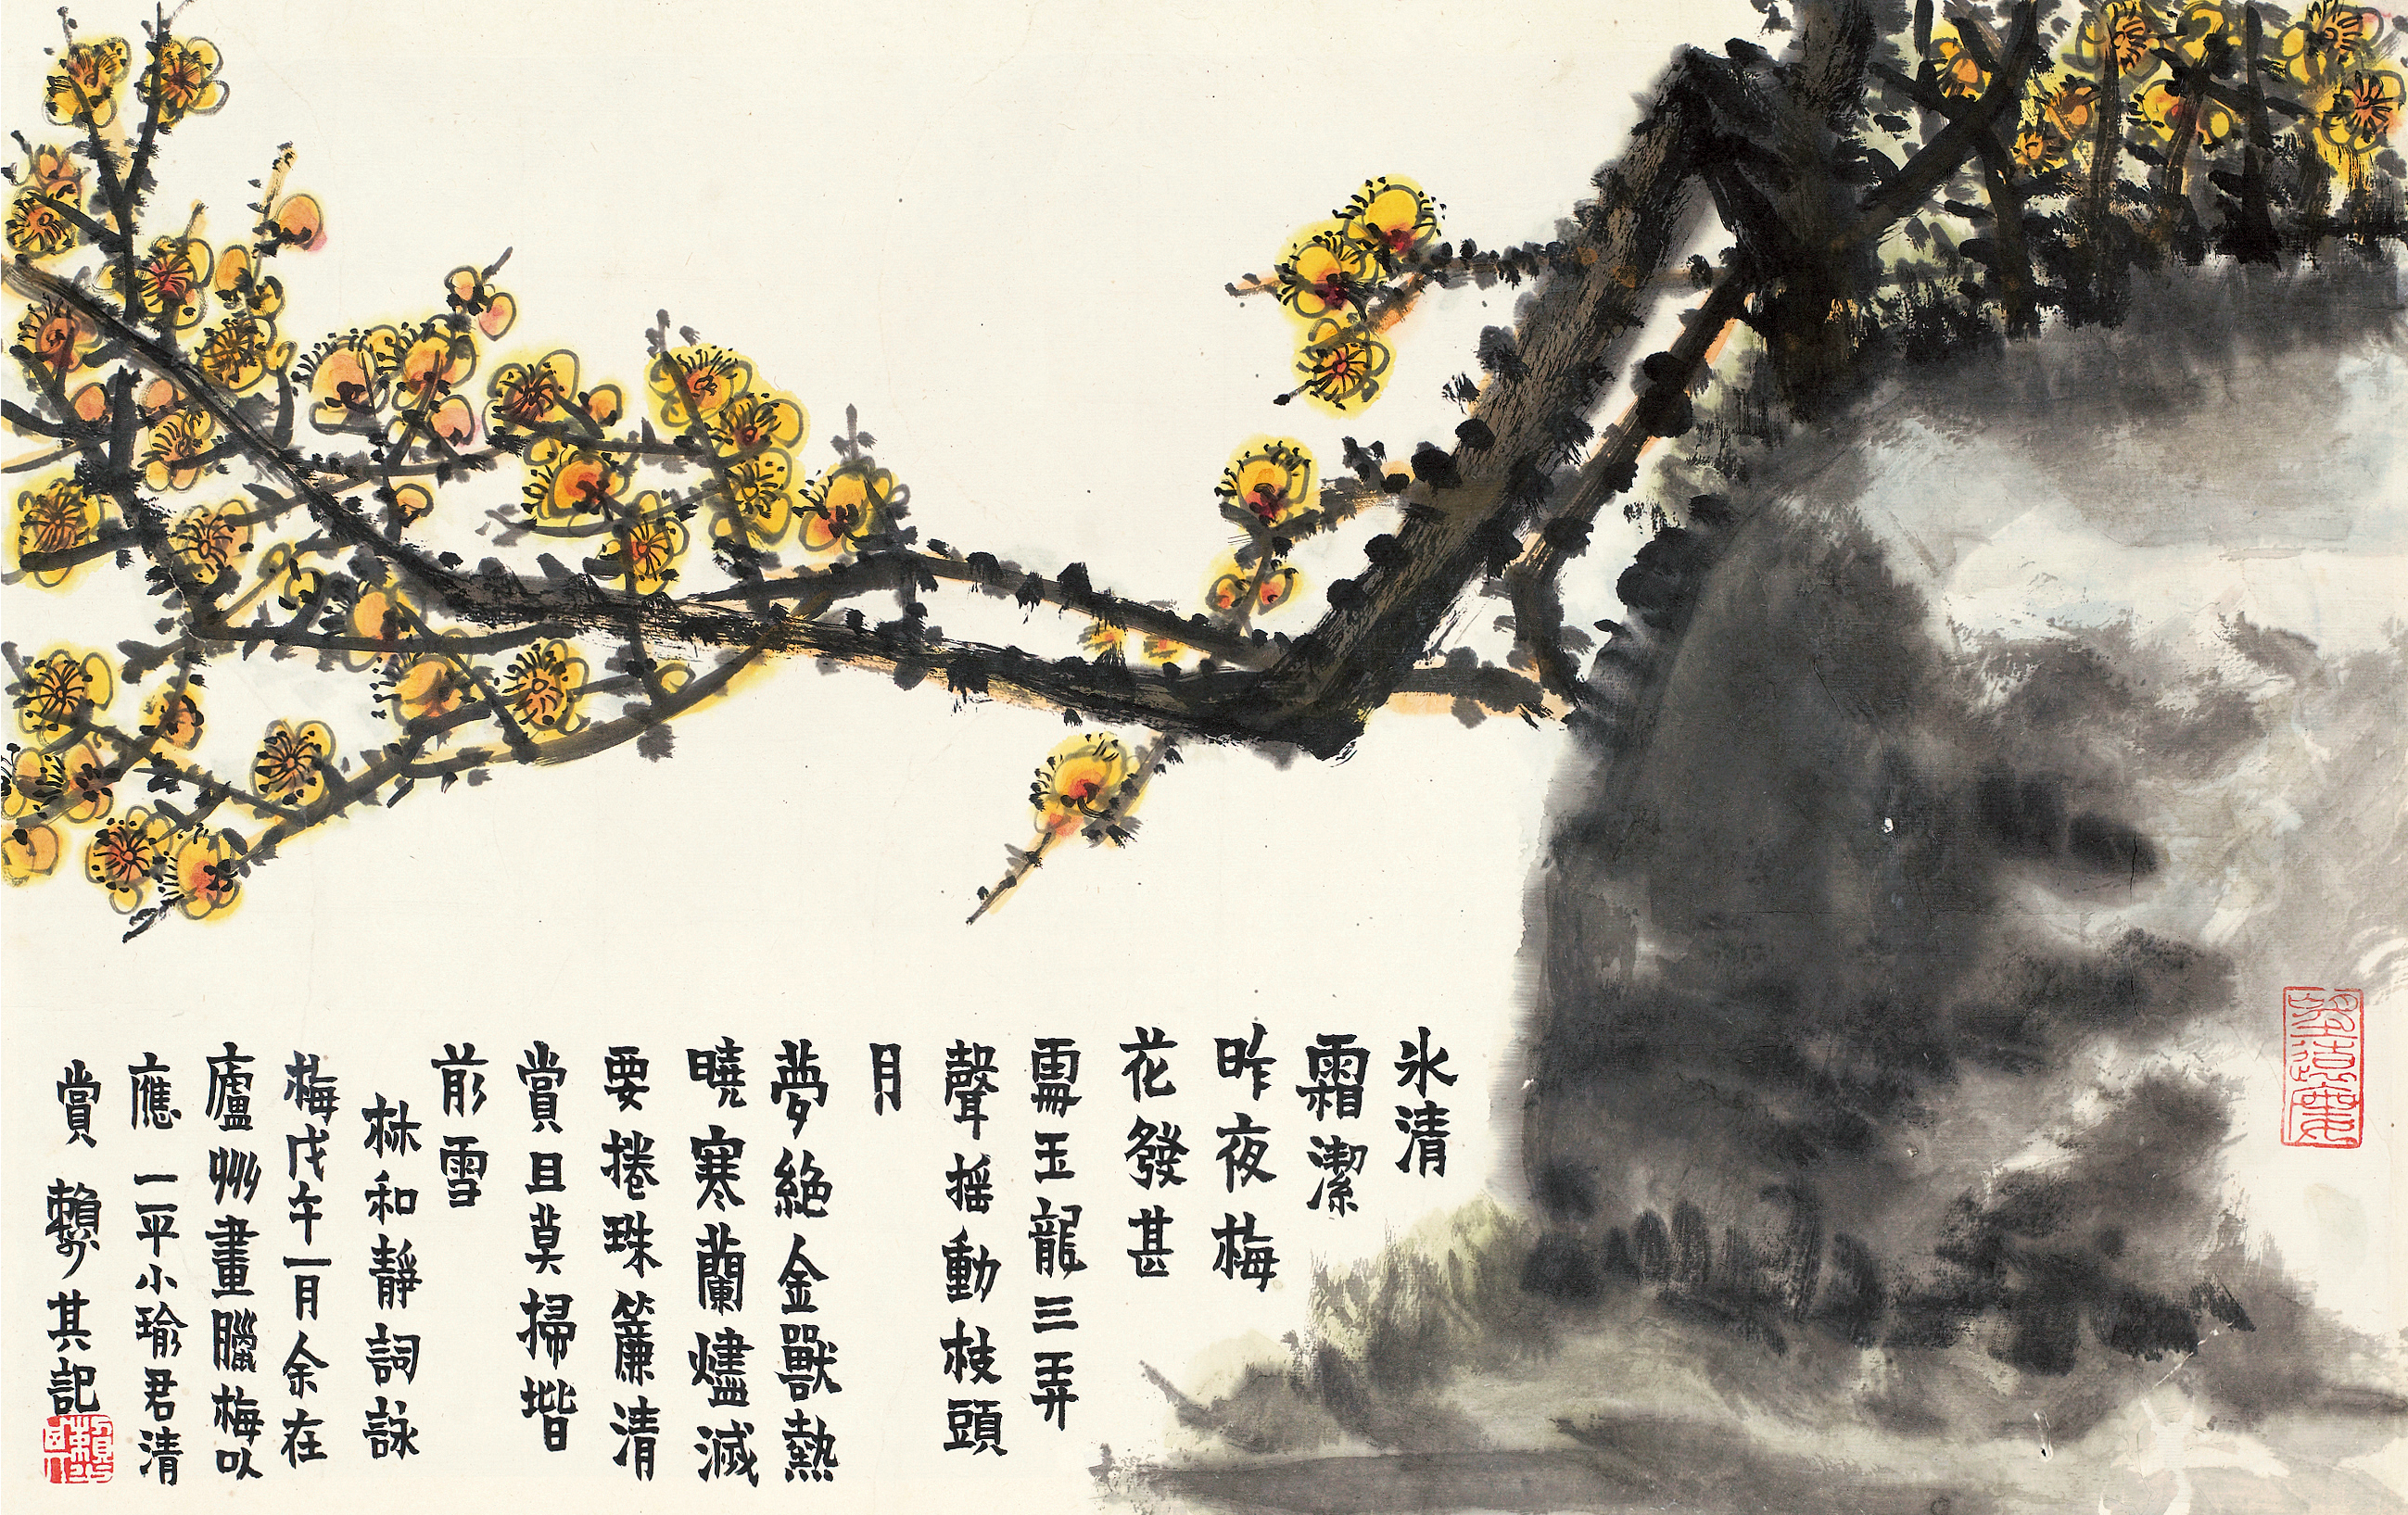 氷清
霜潔
昨夜梅
花發甚
玉龍三弄
聲搖動枝頭
月
夢絕金獸熱
曉寒蘭燼滅
要捲珠簾清
賞且莫掃堦
前雪
林和靜詞詠
梅戊午一月余在
廬州畫臘梅以
應一平小瑜君清
賞 賴少其記